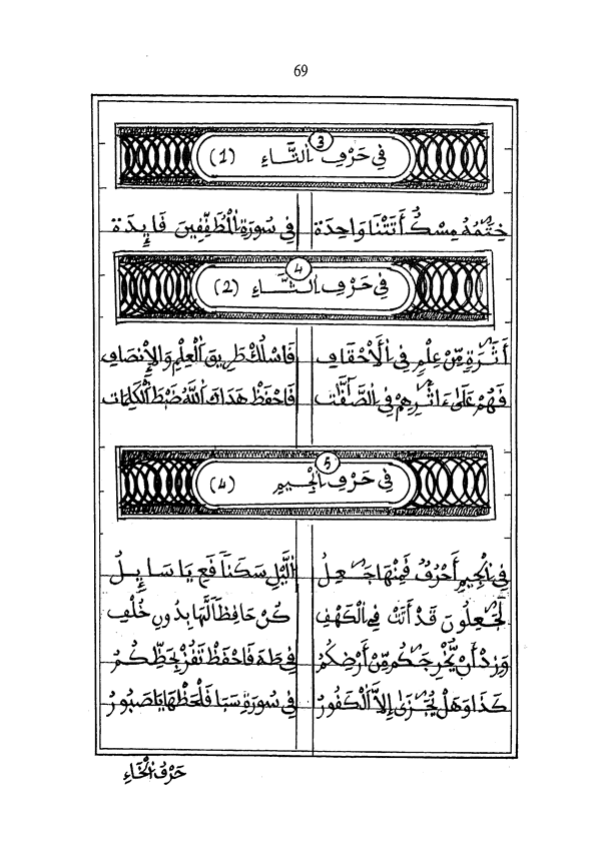 69
3
فِي حَرْفِ التَّـــاءِ (1)
خِتَٰمُهُ مِسْكٌ أَتَتْنَا وَاحِدَة فِي سُورَةِ الْمُطَفِّفِينَ فَايِدَة
4
فِي حَرْفِ الـثَّـــاءِ (2)
أَثَٰرَةٍ مِّنْ عِلْمٍ فِي الَأحْقَافِ فَاسْلُكْ طَرِيقَ الْعِلْمِ وَالإِنْصَافِ
فَهُمْ عَلَىٰ ءَاثَٰرِهِمْ فِي الصَّٰفَّٰت فَاحْفَظْ هَدَاكَ اللَّهُ ضَبْطَ الْكَلِمَات
5
فِي حَرْفِ الْجِـــيمِ (4)
فِي الْجِيمِ أَحْرُفٌ فَمِنْهَا جَٰعِلُ الَّيْلِ سَكَناً فَعِ يَا سَايِلُ
لَجَٰعِلُونَ قَدْ أَتَتْ فِي الْكَهْفِ كُنْ حَافِظاً لَّهَا بِدُونِ خُلْفِ
وَزِدْ أَنْ يُّخْرِجَٰكُم مِّنْ أَرْضِكُمُ فِي طَهَ فَاحْفَظْ تَفُزْ بِحَظِّكُمُ
كَذَا وَهَلْ يُجَٰزَىٰ إِلاَّ الْكَفُورُ فِي سُورَةِ سَبَا فَلْحَظْهَا يَا صَبُورُ
حَرْفُ الْخَاءِ